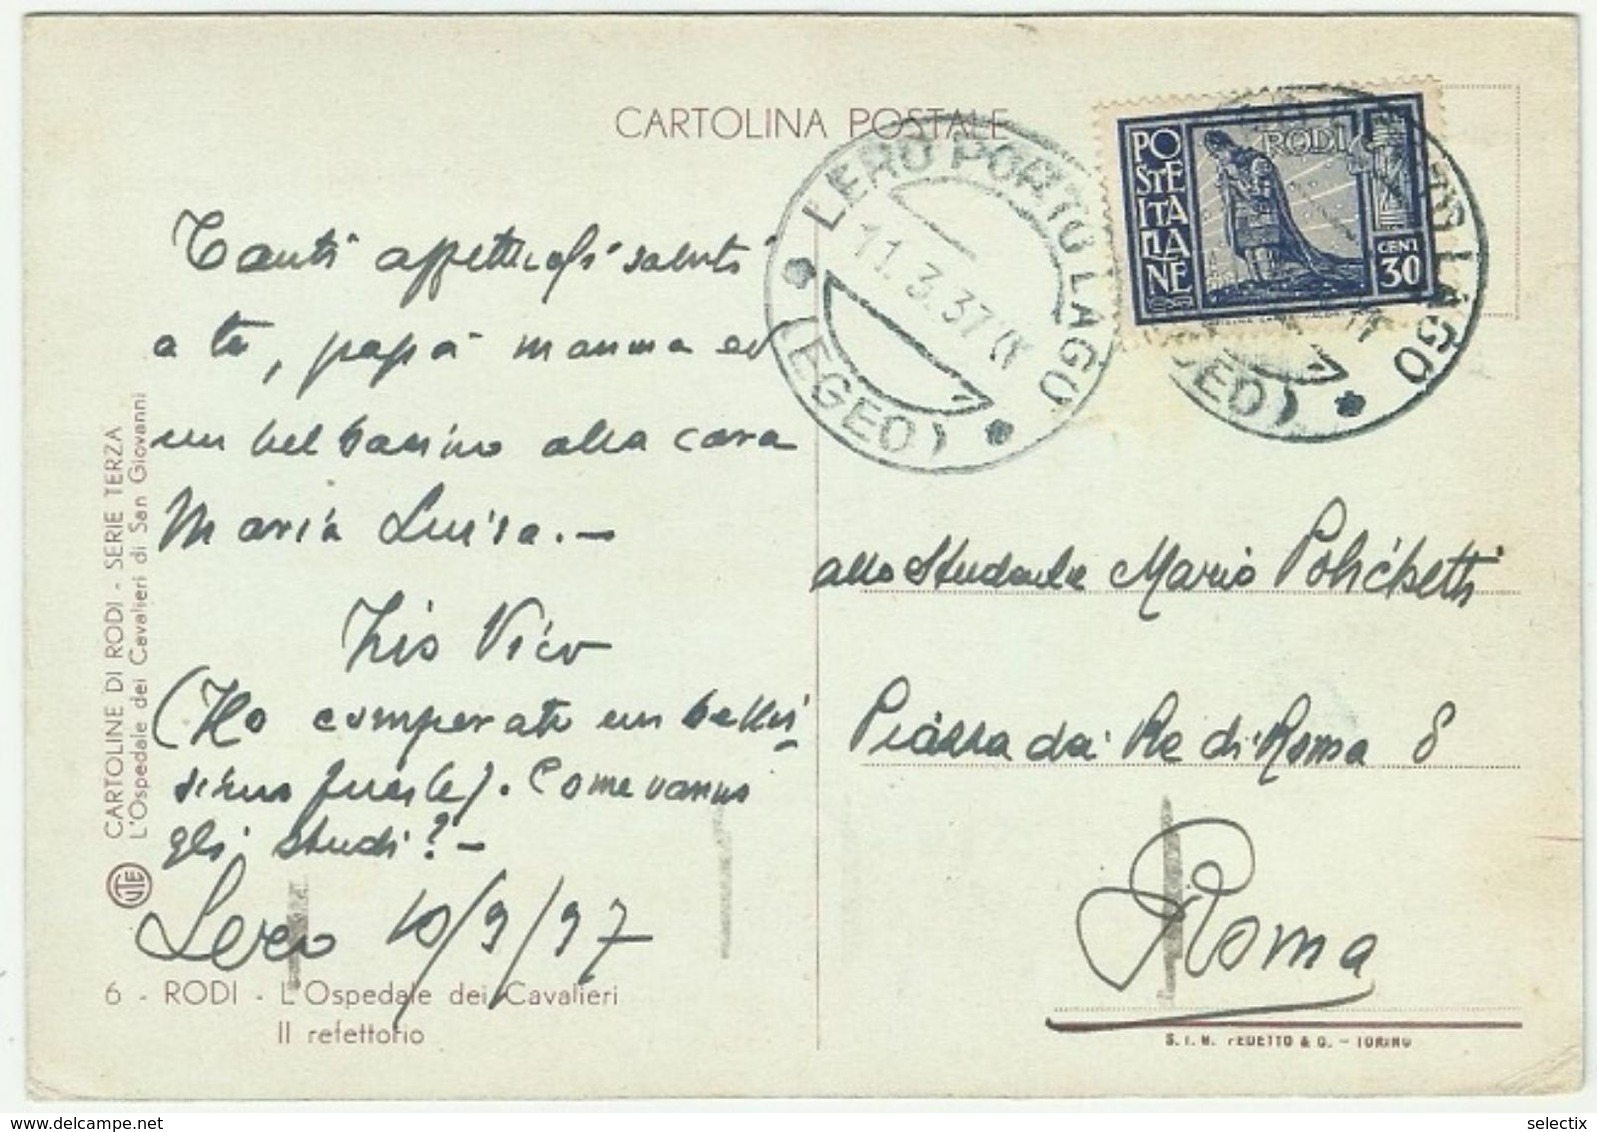 CARTOLINA POSTALE
LERO PORTO LAGO
11.3.37
(EGEO)
POSTE ITALIANE
RODI
CENT
30
Tanti affettuosi saluti
a te, papà mamma ed
un bel bacino alla cara
Maria Luisa.-
Zio Vico
(Ho comperato un bellis
simo fucile). Come vanno
gli studi?-
Lero 10/3/37
allo Studente Mario Polichetti
Piazza dei Re di Roma 8
Roma
CARTOLINE DI RODI - SERIE TERZA
L'Ospedale dei Cavalieri di San Giovanni
UTE
6 - RODI - L'Ospedale dei Cavalieri
Il refettorio
TORINO
selectix